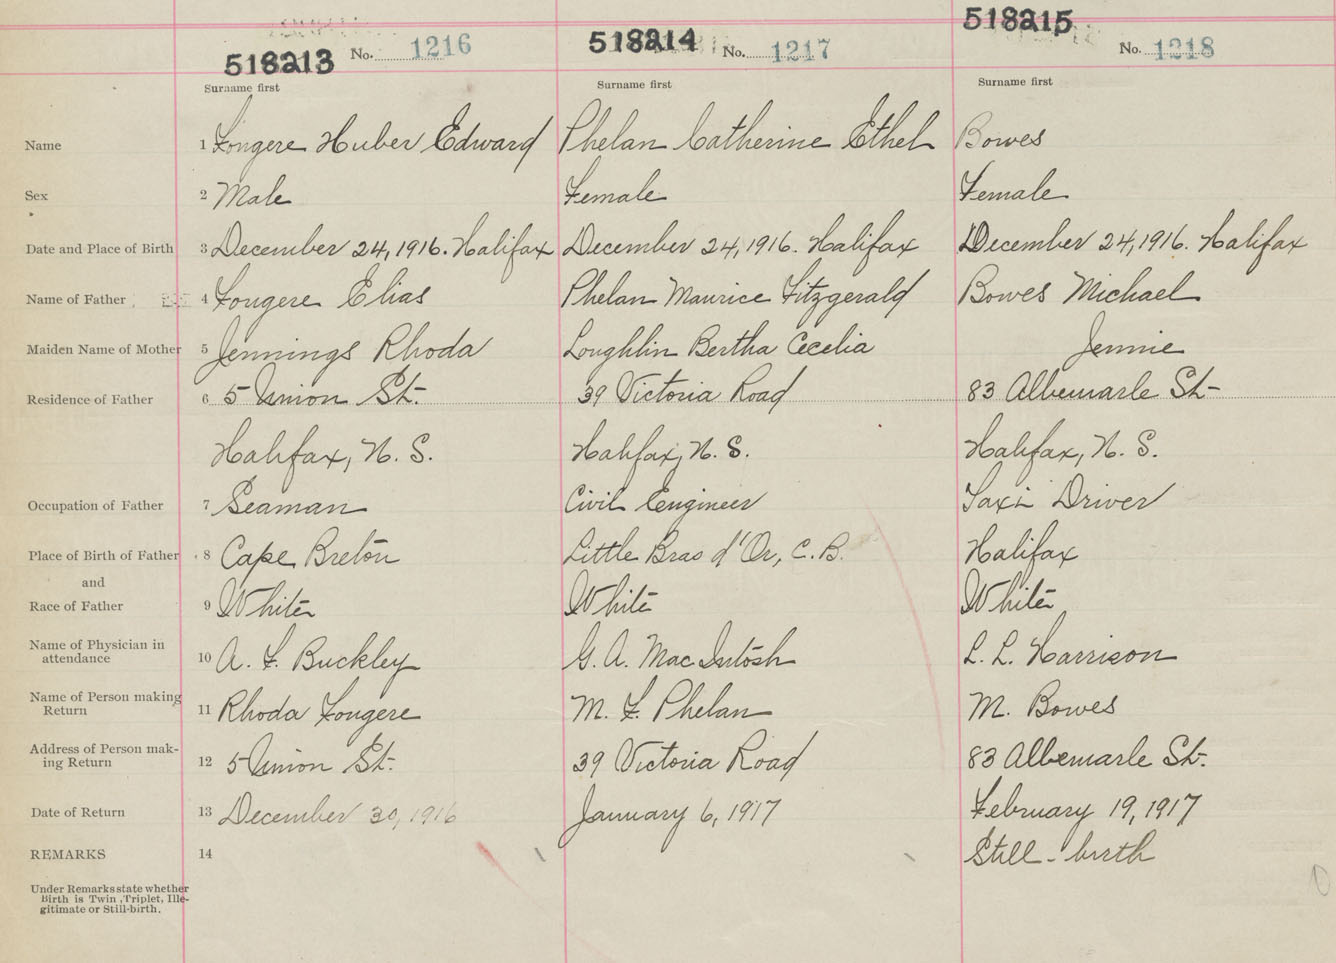 518213 No. 1216 518214 No. 1217 518215 No. 1218
Surname first Surname first Surname first
Name 1 Fougere Huber Edward Phelan Catherine Ethel Bowes
Sex 2 Male Female Female
Date and Place of Birth 3 December 24, 1916. Halifax December 24, 1916. Halifax December 24, 1916. Halifax
Name of Father 4 Fougere Elias Phelan Maurice Fitzgerald Bowes Michael
Maiden Name of Mother 5 Jennings Rhoda Loughlin Bertha Cecelia Jennie
Residence of Father 6 5 Union St. 39 Victoria Road 83 Albemarle St.
Halifax, N. S. Halifax, N. S. Halifax, N. S.
Occupation of Father 7 Seaman Civil Engineer Taxi Driver
Place of Birth of Father 8 Cape Breton Little Bras d'Or, C. B. Halifax
and
Race of Father 9 White White White
Name of Physician in
attendance 10 A. F. Buckley G. A. MacIntosh L. L. Harrison
Name of Person making
Return 11 Rhoda Fougere M. F. Phelan M. Bowes
Address of Person mak-
ing Return 12 5 Union St. 39 Victoria Road 83 Albemarle St.
Date of Return 13 December 30, 1916 January 6, 1917 February 19, 1917
REMARKS 14 Still-birth
Under Remarks state whether
Birth is Twin, Triplet, Ille-
gitimate or Still-birth.